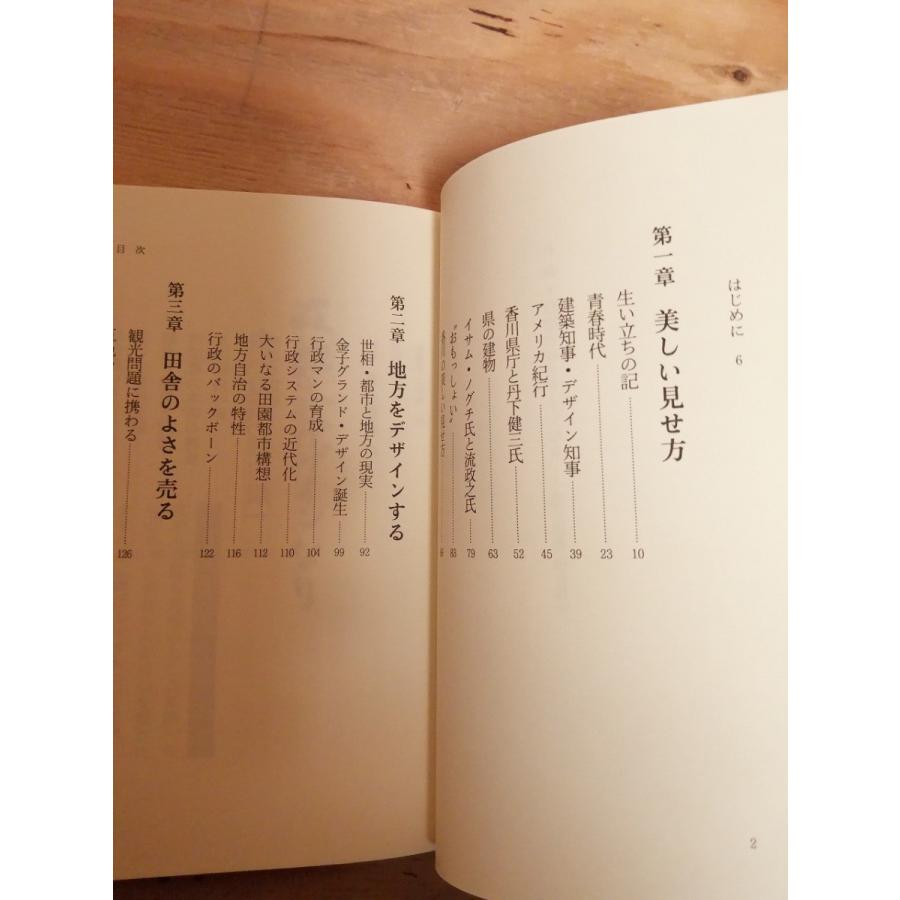 はじめに 6
第一章 美しい見せ方
生い立ちの記 10
青春時代 23
建築知事・デザイン知事 39
アメリカ紀行 45
香川県庁と丹下健三氏 52
県の建物 63
イサム・ノグチ氏と流政之氏 79
“おもっしょい” 83
2
目次
第二章 地方をデザインする
世相・都市と地方の現実 92
金子グランド・デザイン誕生 99
行政マンの育成 104
行政システムの近代化 110
大いなる田園都市構想 112
地方自治の特性 116
行政のバックボーン 122
第三章 田舎のよさを売る
観光問題に携わる 126